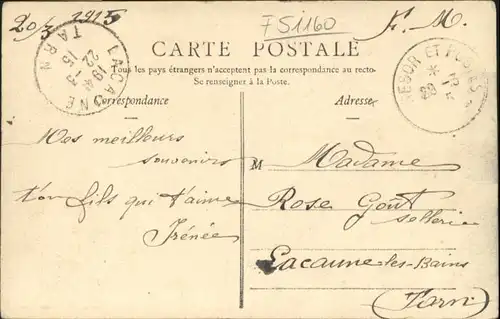 20/3 1915
751160
F. M.
LACAUNE
TARN
19 40
22 - 3
15
CARTE POSTALE
TRESOR ET POSTES
Tous les pays étrangers n'acceptent pas la correspondance au recto-
Se renseigner à la Poste.
Correspondance
Adresse
Mes meilleurs
souvenirs
ton fils qui t'aime
Irénée
M Madame
Rose Goût
sellerie
Lacaune-les-Bains
(Tarn)